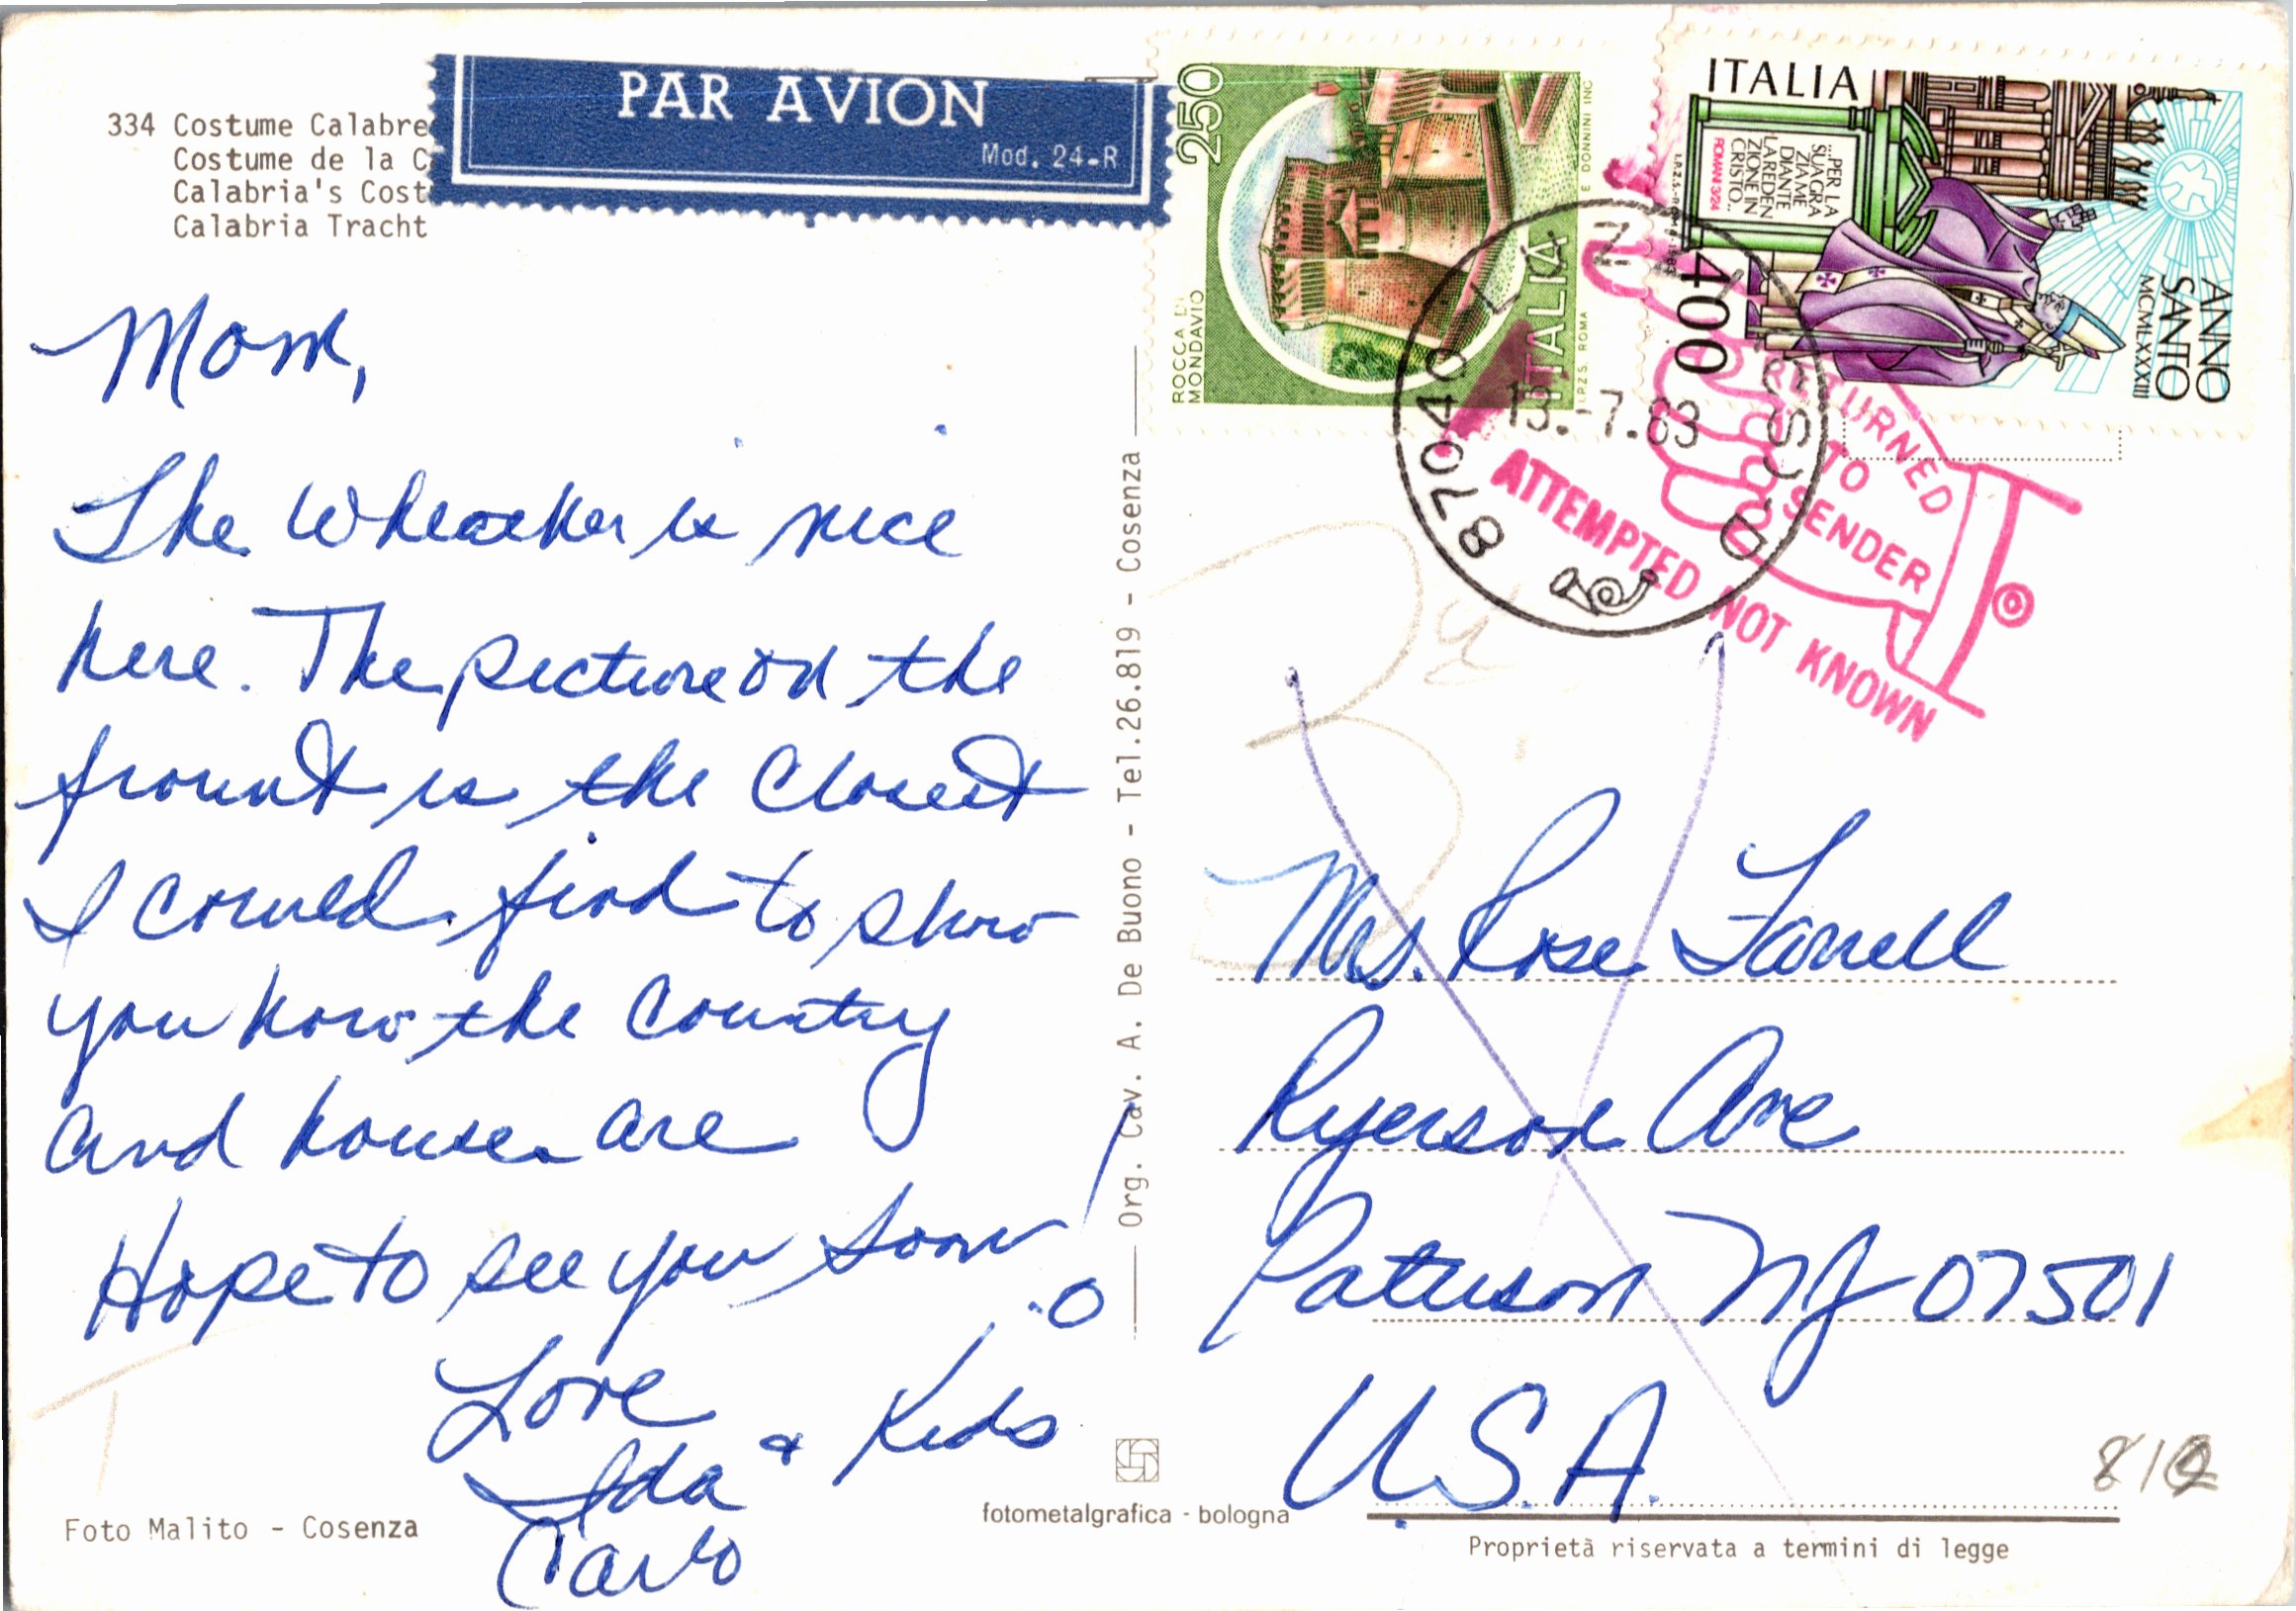 334 Costume Calabre
Costume de la C
Calabria's Cost
Calabria Tracht
PAR AVION
Mod. 24-R
250
ROCCA DI
MONDAVIO
ITALIA
I.P.Z.S. ROMA
E DONNINI INC
ITALIA
...PER LA
SUA GRA
ZIA ME
DIANTE
LA REDEN
ZIONE IN
CRISTO...
ROMANI 3/24
400
ANNO
SANTO
MCMLXXXIII
87040
13.7.83
RETURNED
TO
SENDER
ATTEMPTED NOT KNOWN
Mom,
The Wheather is nice
here. The picture on the
frount is the Closest
I could find to show
you how the Country
and house are
Hope to see you soon!
Love
Ida & Kids
Carlo
Org. Cav. A. De Buono - Tel.26.819 - Cosenza
Mrs. Rose Farrell
Ryerson Ave
Paterson NJ 07501
U.S.A.
Foto Malito - Cosenza
fotometalgrafica - bologna
Proprietà riservata a termini di legge